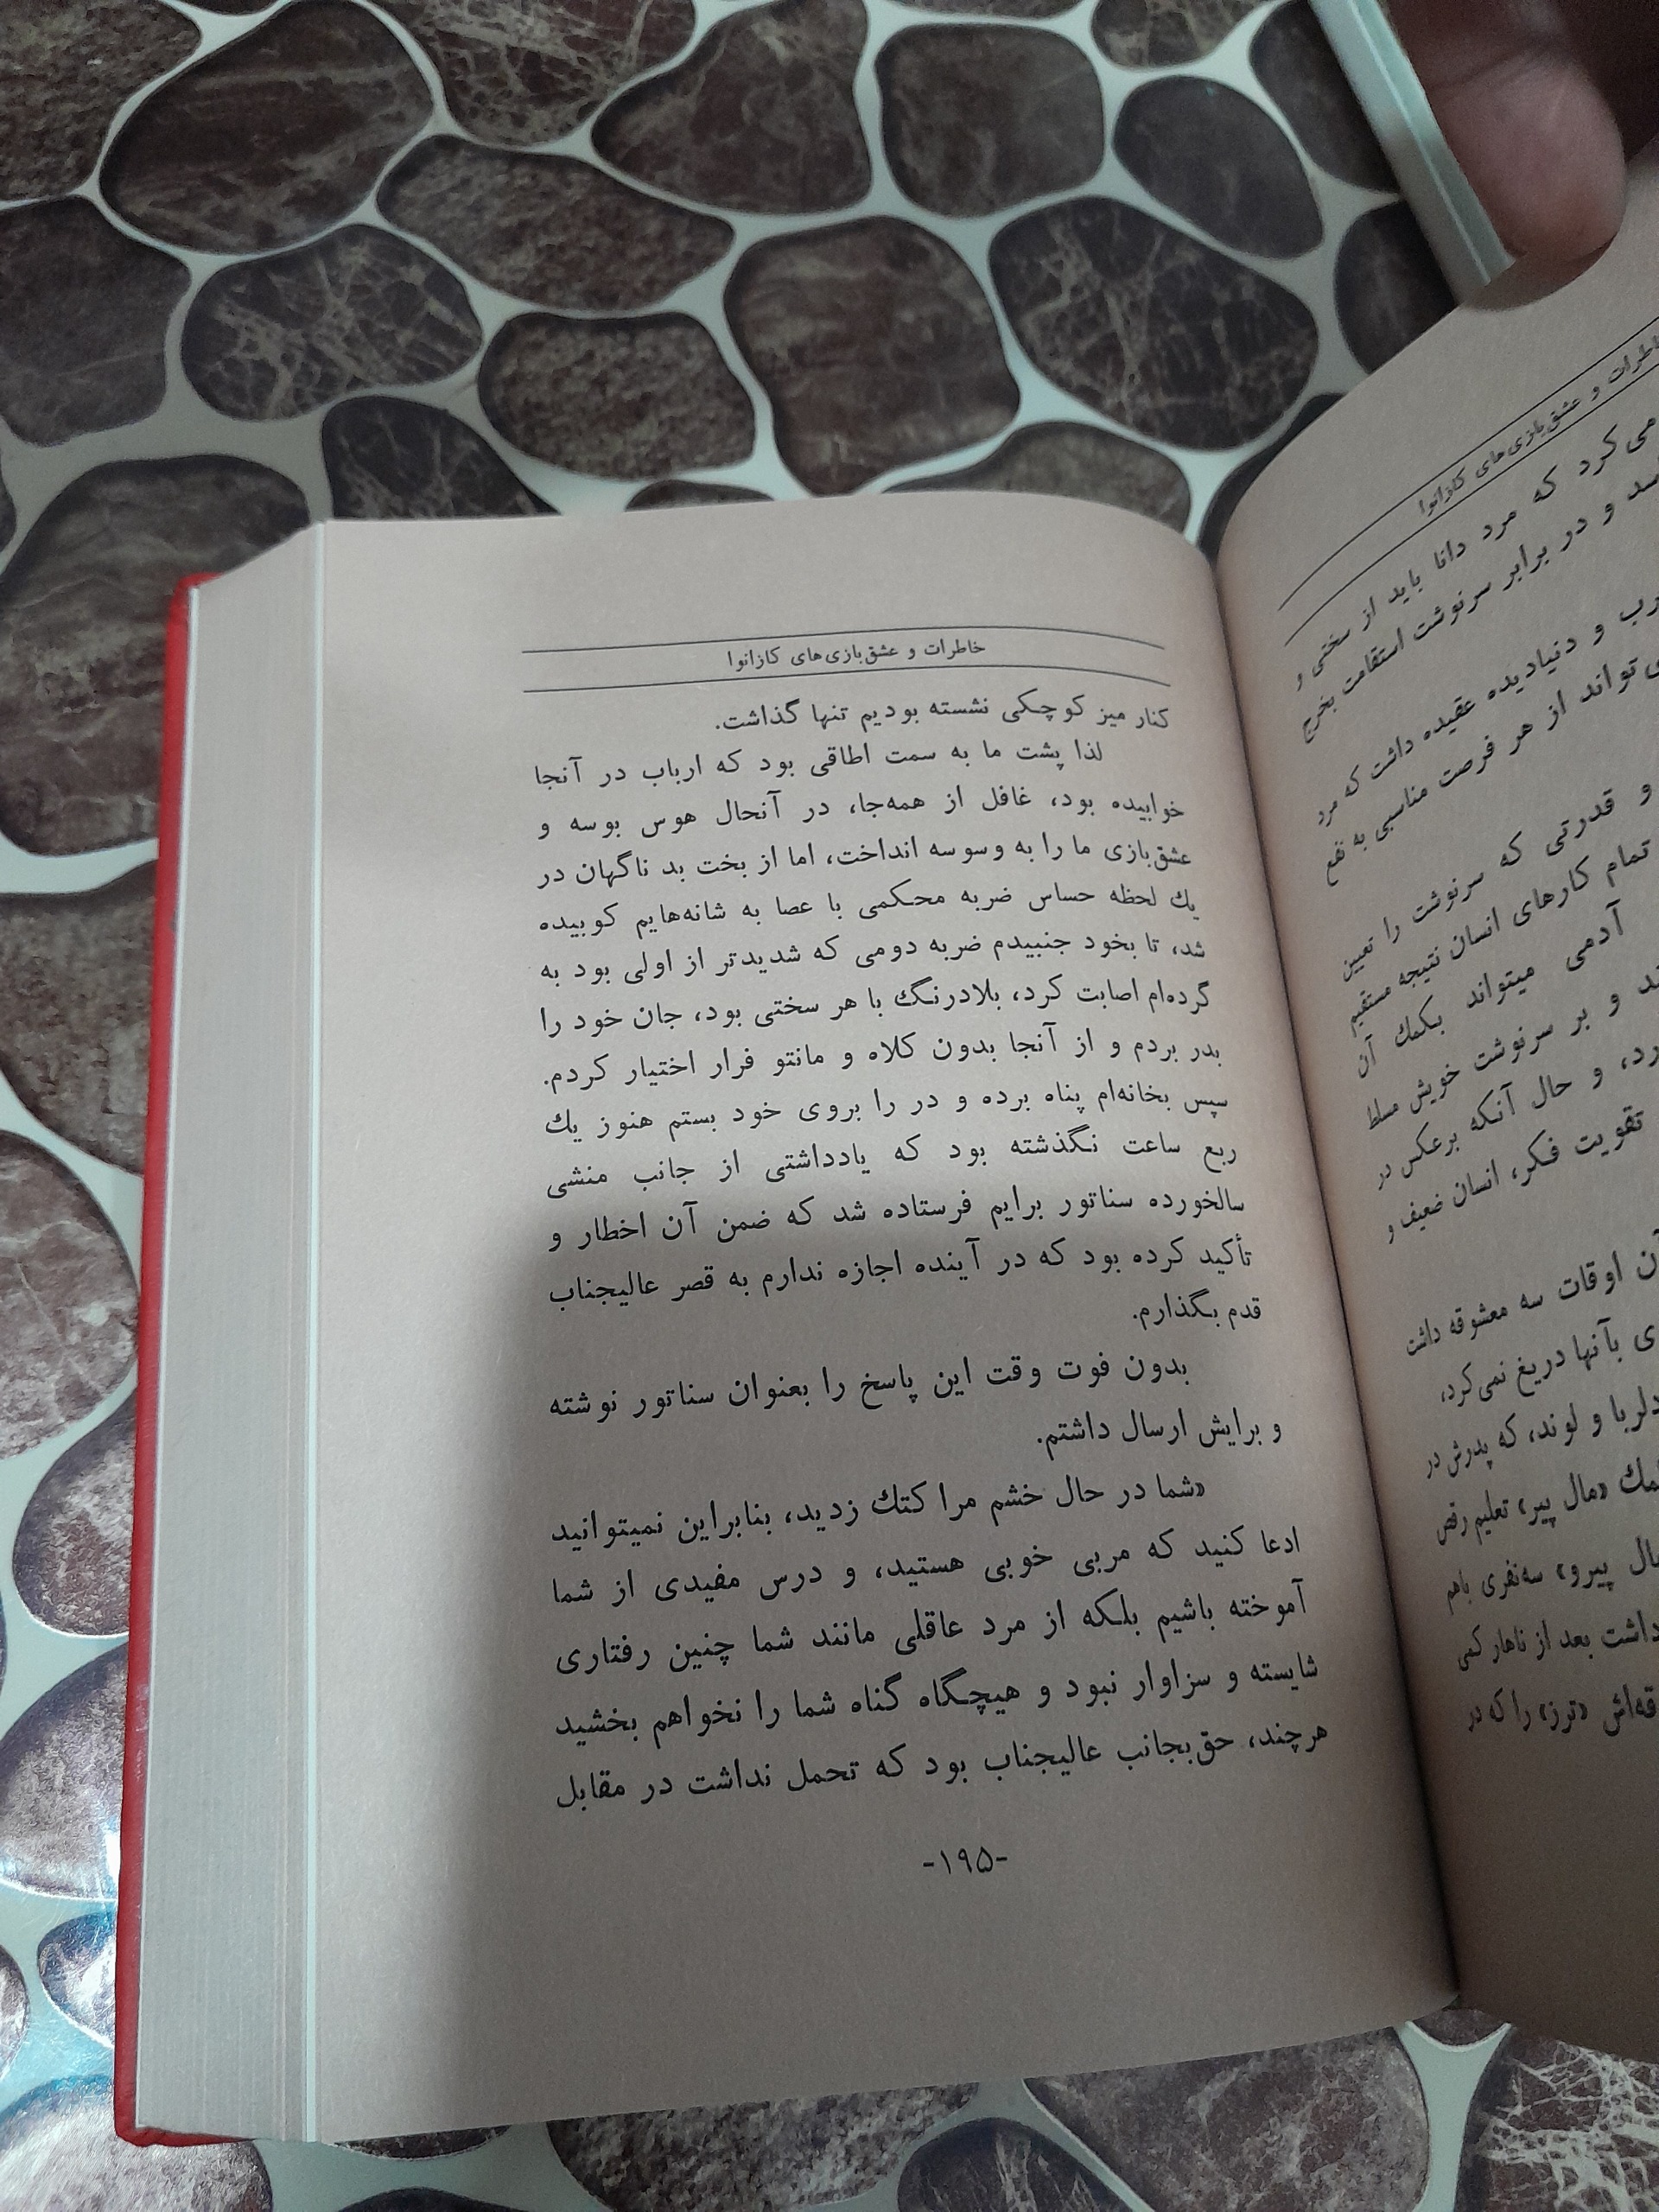 خاطرات و عشق‌بازی‌های کازانوا
می‌کرد که مرد دانا باید از سختی و
و در برابر سرنوشت استقامت بخرج
و دنیادیده عقیده داشت که مرد
تواند از هر فرصت مناسبی به نفع
و قدرتی که سرنوشت را تعیین
تمام کارهای انسان نتیجه مستقیم
آدمی میتواند بکمك آن
و بر سرنوشت خویش مسلط
و حال آنکه برعکس در
تقویت فکر، انسان ضعیف و
اوقات سه معشوقه داشت
بآنها دریغ نمی‌کرد،
و لوند، که پدرش در
«مال پیر» تعلیم رقص
پیرو» سه‌نفری باهم
داشت بعد از ناهار کمی
«ترز» را که در
خاطرات و عشق‌بازی‌های کازانوا
کنار میز کوچکی نشسته بودیم تنها گذاشت.
لذا پشت ما به سمت اطاقی بود که ارباب در آنجا
خوابیده بود، غافل از همه‌جا، در آنحال هوس بوسه و
عشق‌بازی ما را به وسوسه انداخت، اما از بخت بد ناگهان در
یك لحظه حساس ضربه محکمی با عصا به شانه‌هایم کوبیده
شد، تا بخود جنبیدم ضربه دومی که شدیدتر از اولی بود به
گرده‌ام اصابت کرد، بلادرنگ با هر سختی بود، جان خود را
بدر بردم و از آنجا بدون کلاه و مانتو فرار اختیار کردم.
سپس بخانه‌ام پناه برده و در را بروی خود بستم هنوز یك
ربع ساعت نگذشته بود که یادداشتی از جانب منشی
سالخورده سناتور برایم فرستاده شد که ضمن آن اخطار و
تأکید کرده بود که در آینده اجازه ندارم به قصر عالیجناب
قدم بگذارم.
بدون فوت وقت این پاسخ را بعنوان سناتور نوشته
و برایش ارسال داشتم.
«شما در حال خشم مرا کتك زدید، بنابراین نمیتوانید
ادعا کنید که مربی خوبی هستید، و درس مفیدی از شما
آموخته باشیم بلکه از مرد عاقلی مانند شما چنین رفتاری
شایسته و سزاوار نبود و هیچگاه گناه شما را نخواهم بخشید
هرچند، حق‌بجانب عالیجناب بود که تحمل نداشت در مقابل
-۱۹۵-